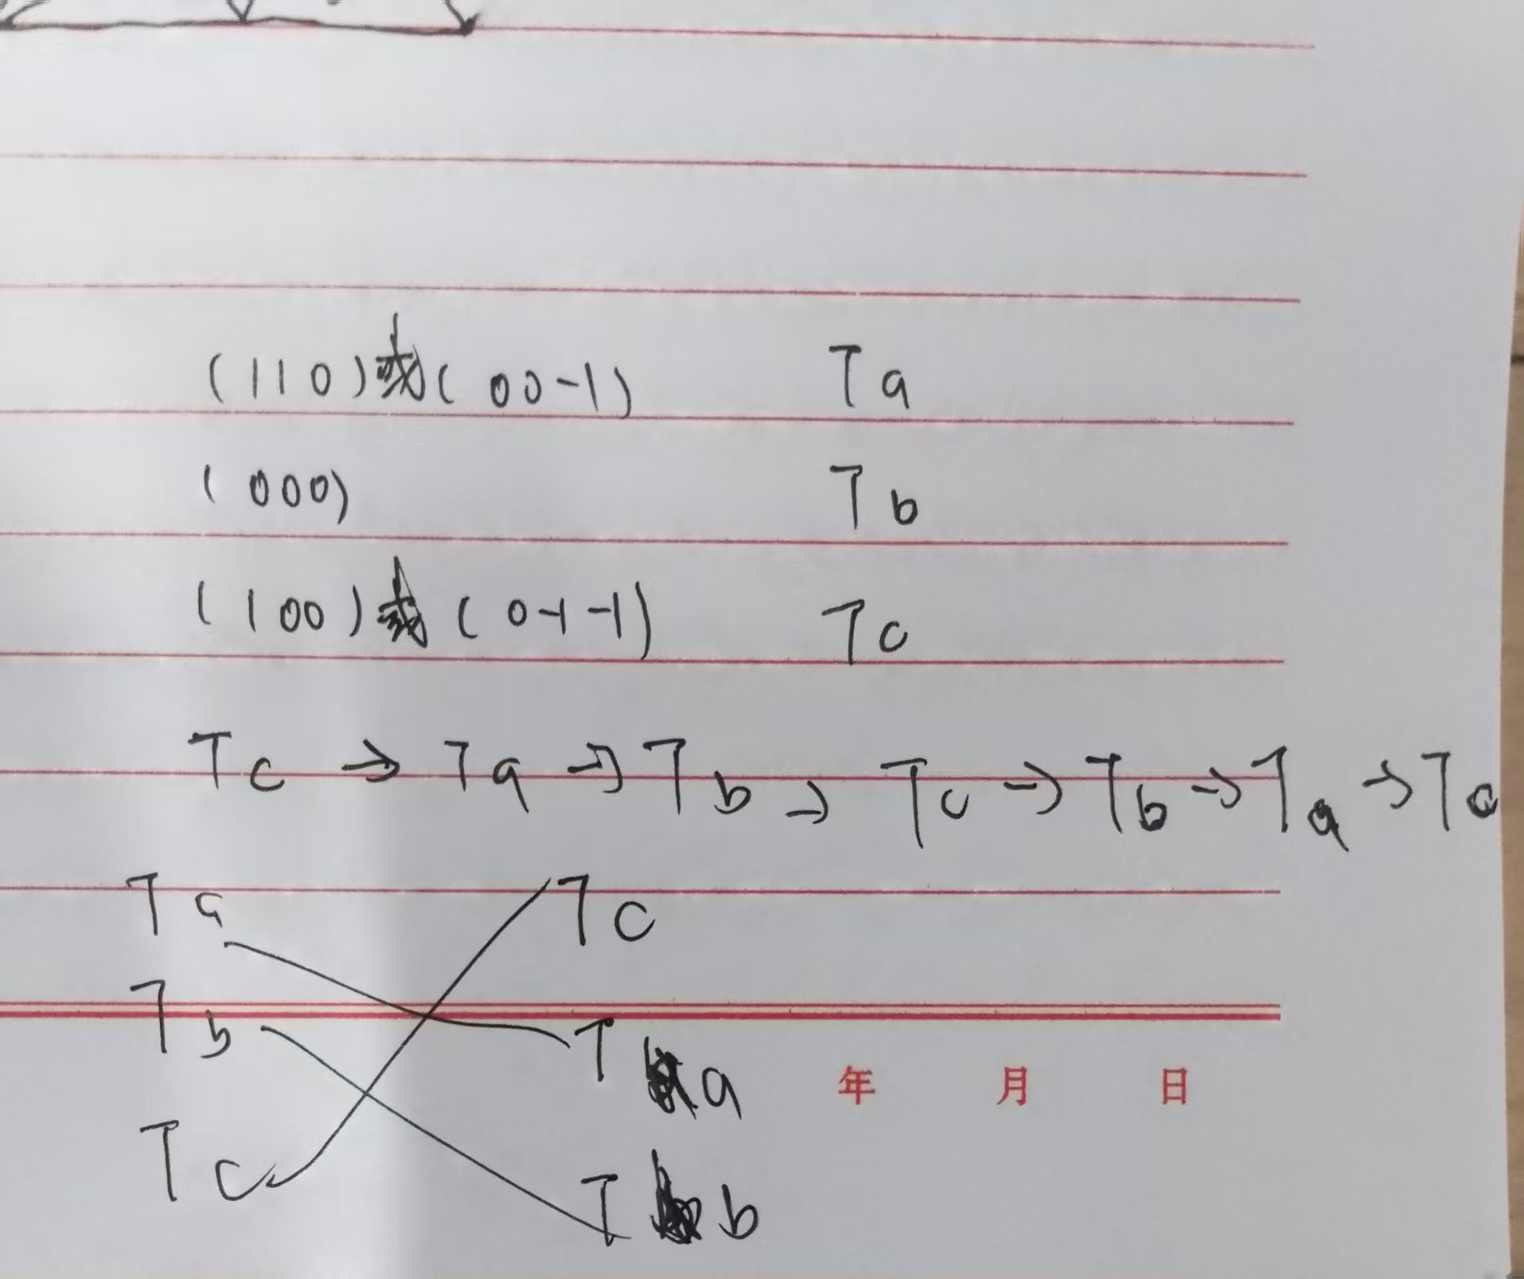 (110)或(00-1) Ta
(000) Tb
(100)或(0-1-1) Tc
Tc → Ta → Tb → Tc → Tb → Ta → Tc
Ta Tc
Tb T a
年 月 日
Tc T b